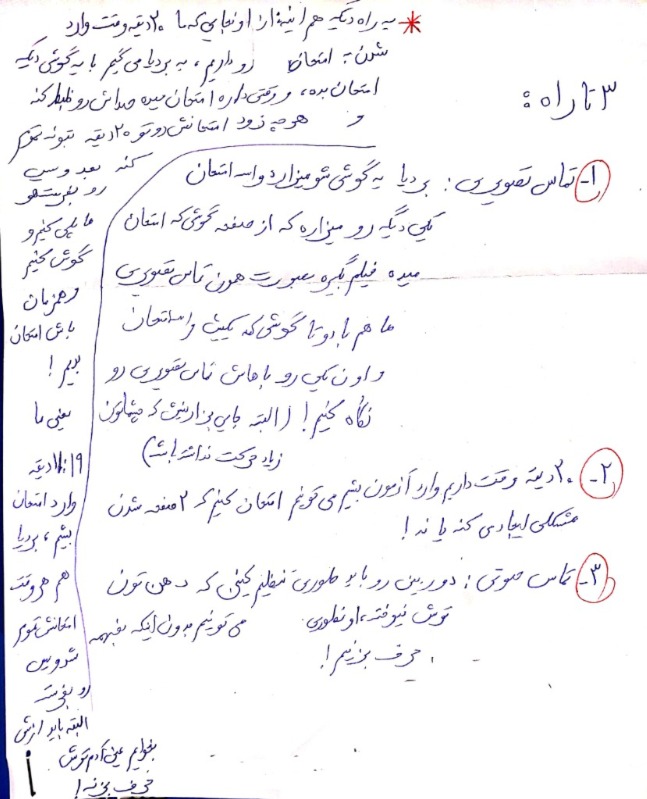 * یه راه دیگه هم اینه: از اونجایی که ما ۲۰ دقیقه وقت وارد
شدن به امتحان رو داریم، به بردیا می‌گیم با یه گوشی دیگه
امتحان بده، و وقتی داره امتحان میده صداش رو ضبط کنه
و هرچه زود امتحانش رو تو ۲۰ دقیقه تموم
کنه بعد ویس
رو بفرسته
ما پلی کنیم و
گوش کنیم
و همزمان
باش امتحان
بدیم!
یعنی ما
۱۹:۱۱ دقیقه
وارد امتحان
بشیم، بردیا
هم هر وقت
امتحانش تموم
شد ویس
رو بفرسته
البته باید ازش
بخوایم عین آدم توش
حرف بزنه!
۳ تا راه:
۱- تماس تصویری: بردیا یه گوشی شو میزاره واسه امتحان
یکی دیگه رو میزاره که از صفحه گوشی که امتحان
میده فیلم بگیره بصورت همون تماس تصویری
ما هم با دو تا گوشی که یکیش واسه امتحان
و اون یکی رو باهاش تماس تصویری رو
نگاه کنیم! (البته جایی بزارینش که چشماتون
زیاد حرکت نداشته باشه)
۲- ۲۰ دقیقه وقت داریم وارد آزمون بشیم می‌تونیم امتحان کنیم که ۲ صفحه شدن
مشکلی ایجادی کنه یا نه!
۳- تماس صوتی: دوربین رو باید طوری تنظیم کنیم که دهن تون
توش نیوفته، اونطوری می‌تونیم بدون اینکه بفهمه
حرف بزنیم!